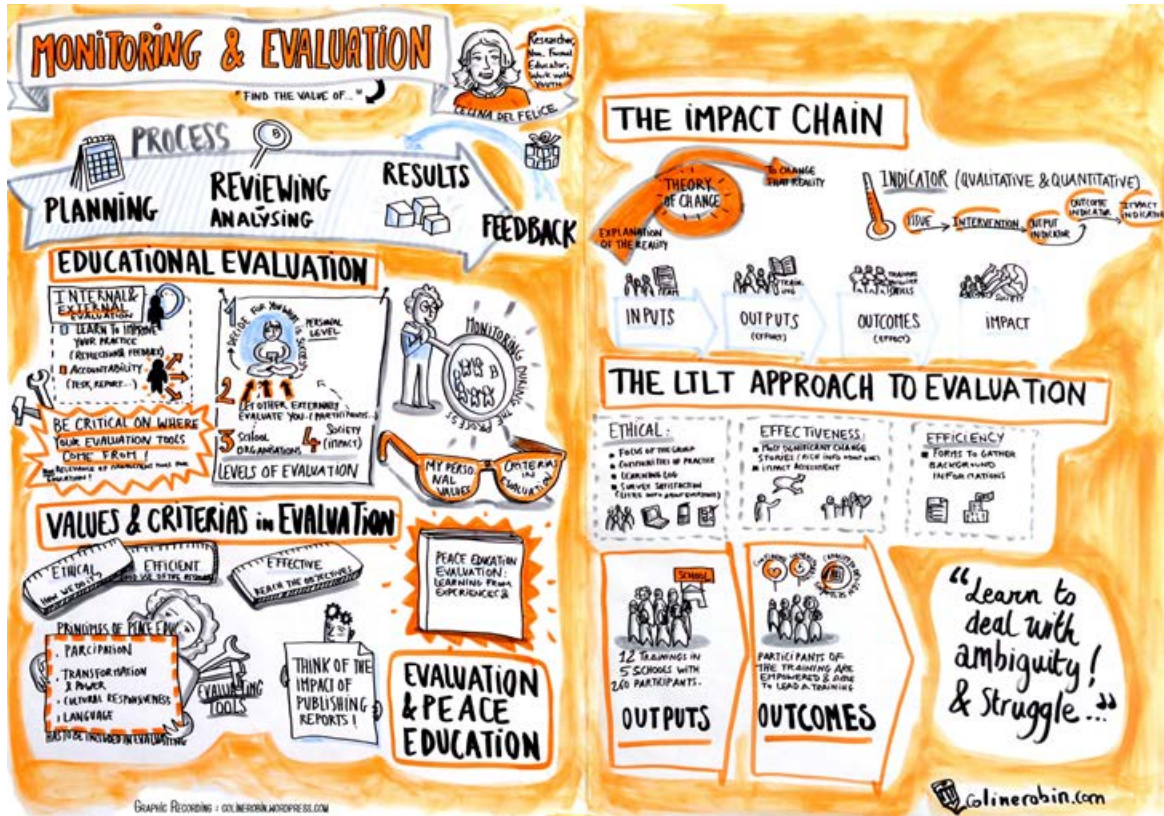 MONITORING & EVALUATION
"FIND THE VALUE OF..."
Researcher,
Non Formal
Educator,
Work with
YOUTH
CELINA DEL FELICE
PROCESS
PLANNING
REVIEWING
ANALYSING
RESULTS
FEEDBACK
EDUCATIONAL EVALUATION
INTERNAL &
EXTERNAL
EVALUATION
LEARN TO IMPROVE
YOUR PRACTICE
(REFLECTION & FEEDBACK)
ACCOUNTABILITY
(TESK, REPORT...)
BE CRITICAL ON WHERE
YOUR EVALUATION TOOLS
COME FROM!
EDUCATION!
1
DECIDE FOR YOU WHAT IS SUCCESS
PERSONAL
LEVEL
2
LET OTHER EXTERNALLY
EVALUATE YOU (PARTICIPANTS...)
3 SCHOOL
ORGANISATIONS
4 SOCIETY
(IMPACT)
LEVELS OF EVALUATION
MONITORING DURING THE PROCESS
MY PERSO
NAL
VALUES
CRITERIAS
IN
EVALUATION
VALUES & CRITERIAS in EVALUATION
ETHICAL
HOW WE DO IT?
EFFICIENT
GOOD USE OF THE RESOURCES
EFFECTIVE
REACH THE OBJECTIVES
PRINCIPLES OF PEACE EDU
. PARCIPATION
. TRANSFORMATION
& POWER
. CULTURAL RESPONSIVENESS
. LANGUAGE
HAS TO BE INCLUDED IN EVALUATING
EVALUATING
TOOLS
THINK OF THE
IMPACT OF
PUBLISHING
REPORTS!
PEACE EDUCATION
EVALUATION:
LEARNING FROM
EXPERIENCES &
EVALUATION
& PEACE
EDUCATION
GRAPHIC RECORDING : COLINEROBIN.WORDPRESS.COM
THE IMPACT CHAIN
THEORY
OF CHANGE
TO CHANGE
THAT REALITY
EXPLANATION
OF THE REALITY
INDICATOR (QUALITATIVE & QUANTITATIVE)
ISSUE
INTERVENTION
OUTPUT
INDICATOR
OUTCOME
INDICATOR
IMPACT
INDICATOR
TEAM
INPUTS
OUTPUTS
(EFFECT)
OUTCOMES
(EFFECT)
SOCIETY
IMPACT
THE LTLT APPROACH TO EVALUATION
ETHICAL:
FOCUS OF THE GROUP
COMMUNITIES OF PRACTICE
LEARNING LOG
SURVEY SATISFACTION
EFFECTIVENESS:
MOST SIGNIFICANT CHANGE
IMPACT ASSESSMENT
EFFICIENCY
FORMS TO GATHER
BACKGROUND
INFORMATIONS
SCHOOL
12 TRAININGS IN
5 SCHOOLS WITH
260 PARTICIPANTS.
OUTPUTS
PARTICIPANTS OF
THE TRAINING ARE
EMPOWERED & ABLE
TO LEAD A TRAINING
OUTCOMES
"Learn to
deal with
ambiguity!
& Struggle..."
colinerobin.com